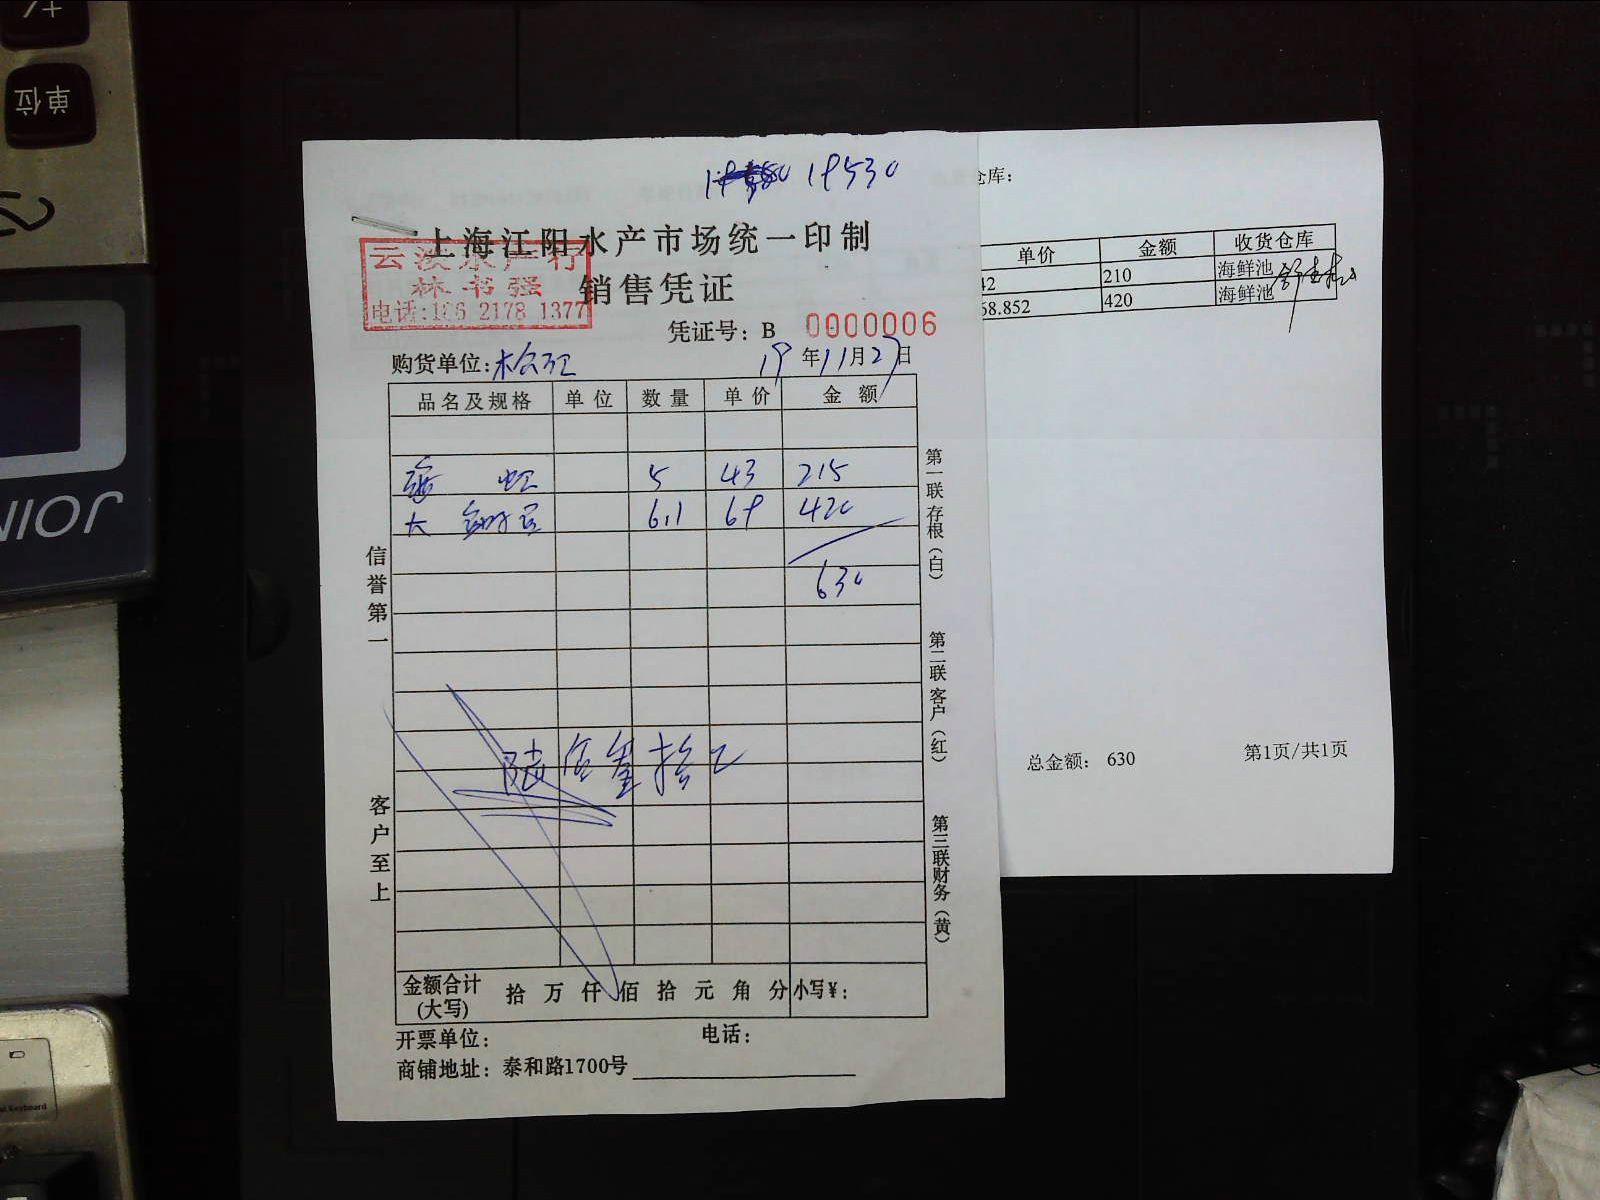 7/+
单位
JOIN
19530
上海江阳水产市场统一印制
云淡水产行
林书强
电话:186 2178 1377
销售凭证
凭证号：B 0000006
购货单位： 19年11月27日
品名及规格 单位 数量 单价 金额
5 43 215
大 6.1 69 420
630
陆佰叁拾元
信誉第一
客户至上
第一联存根（白）
第二联客户（红）
第三联财务（黄）
金额合计(大写) 拾万仟佰拾元角分 小写¥：
开票单位： 电话：
商铺地址：泰和路1700号
仓库：
单价 金额 收货仓库
42 210 海鲜池
68.852 420 海鲜池
总金额： 630 第1页/共1页